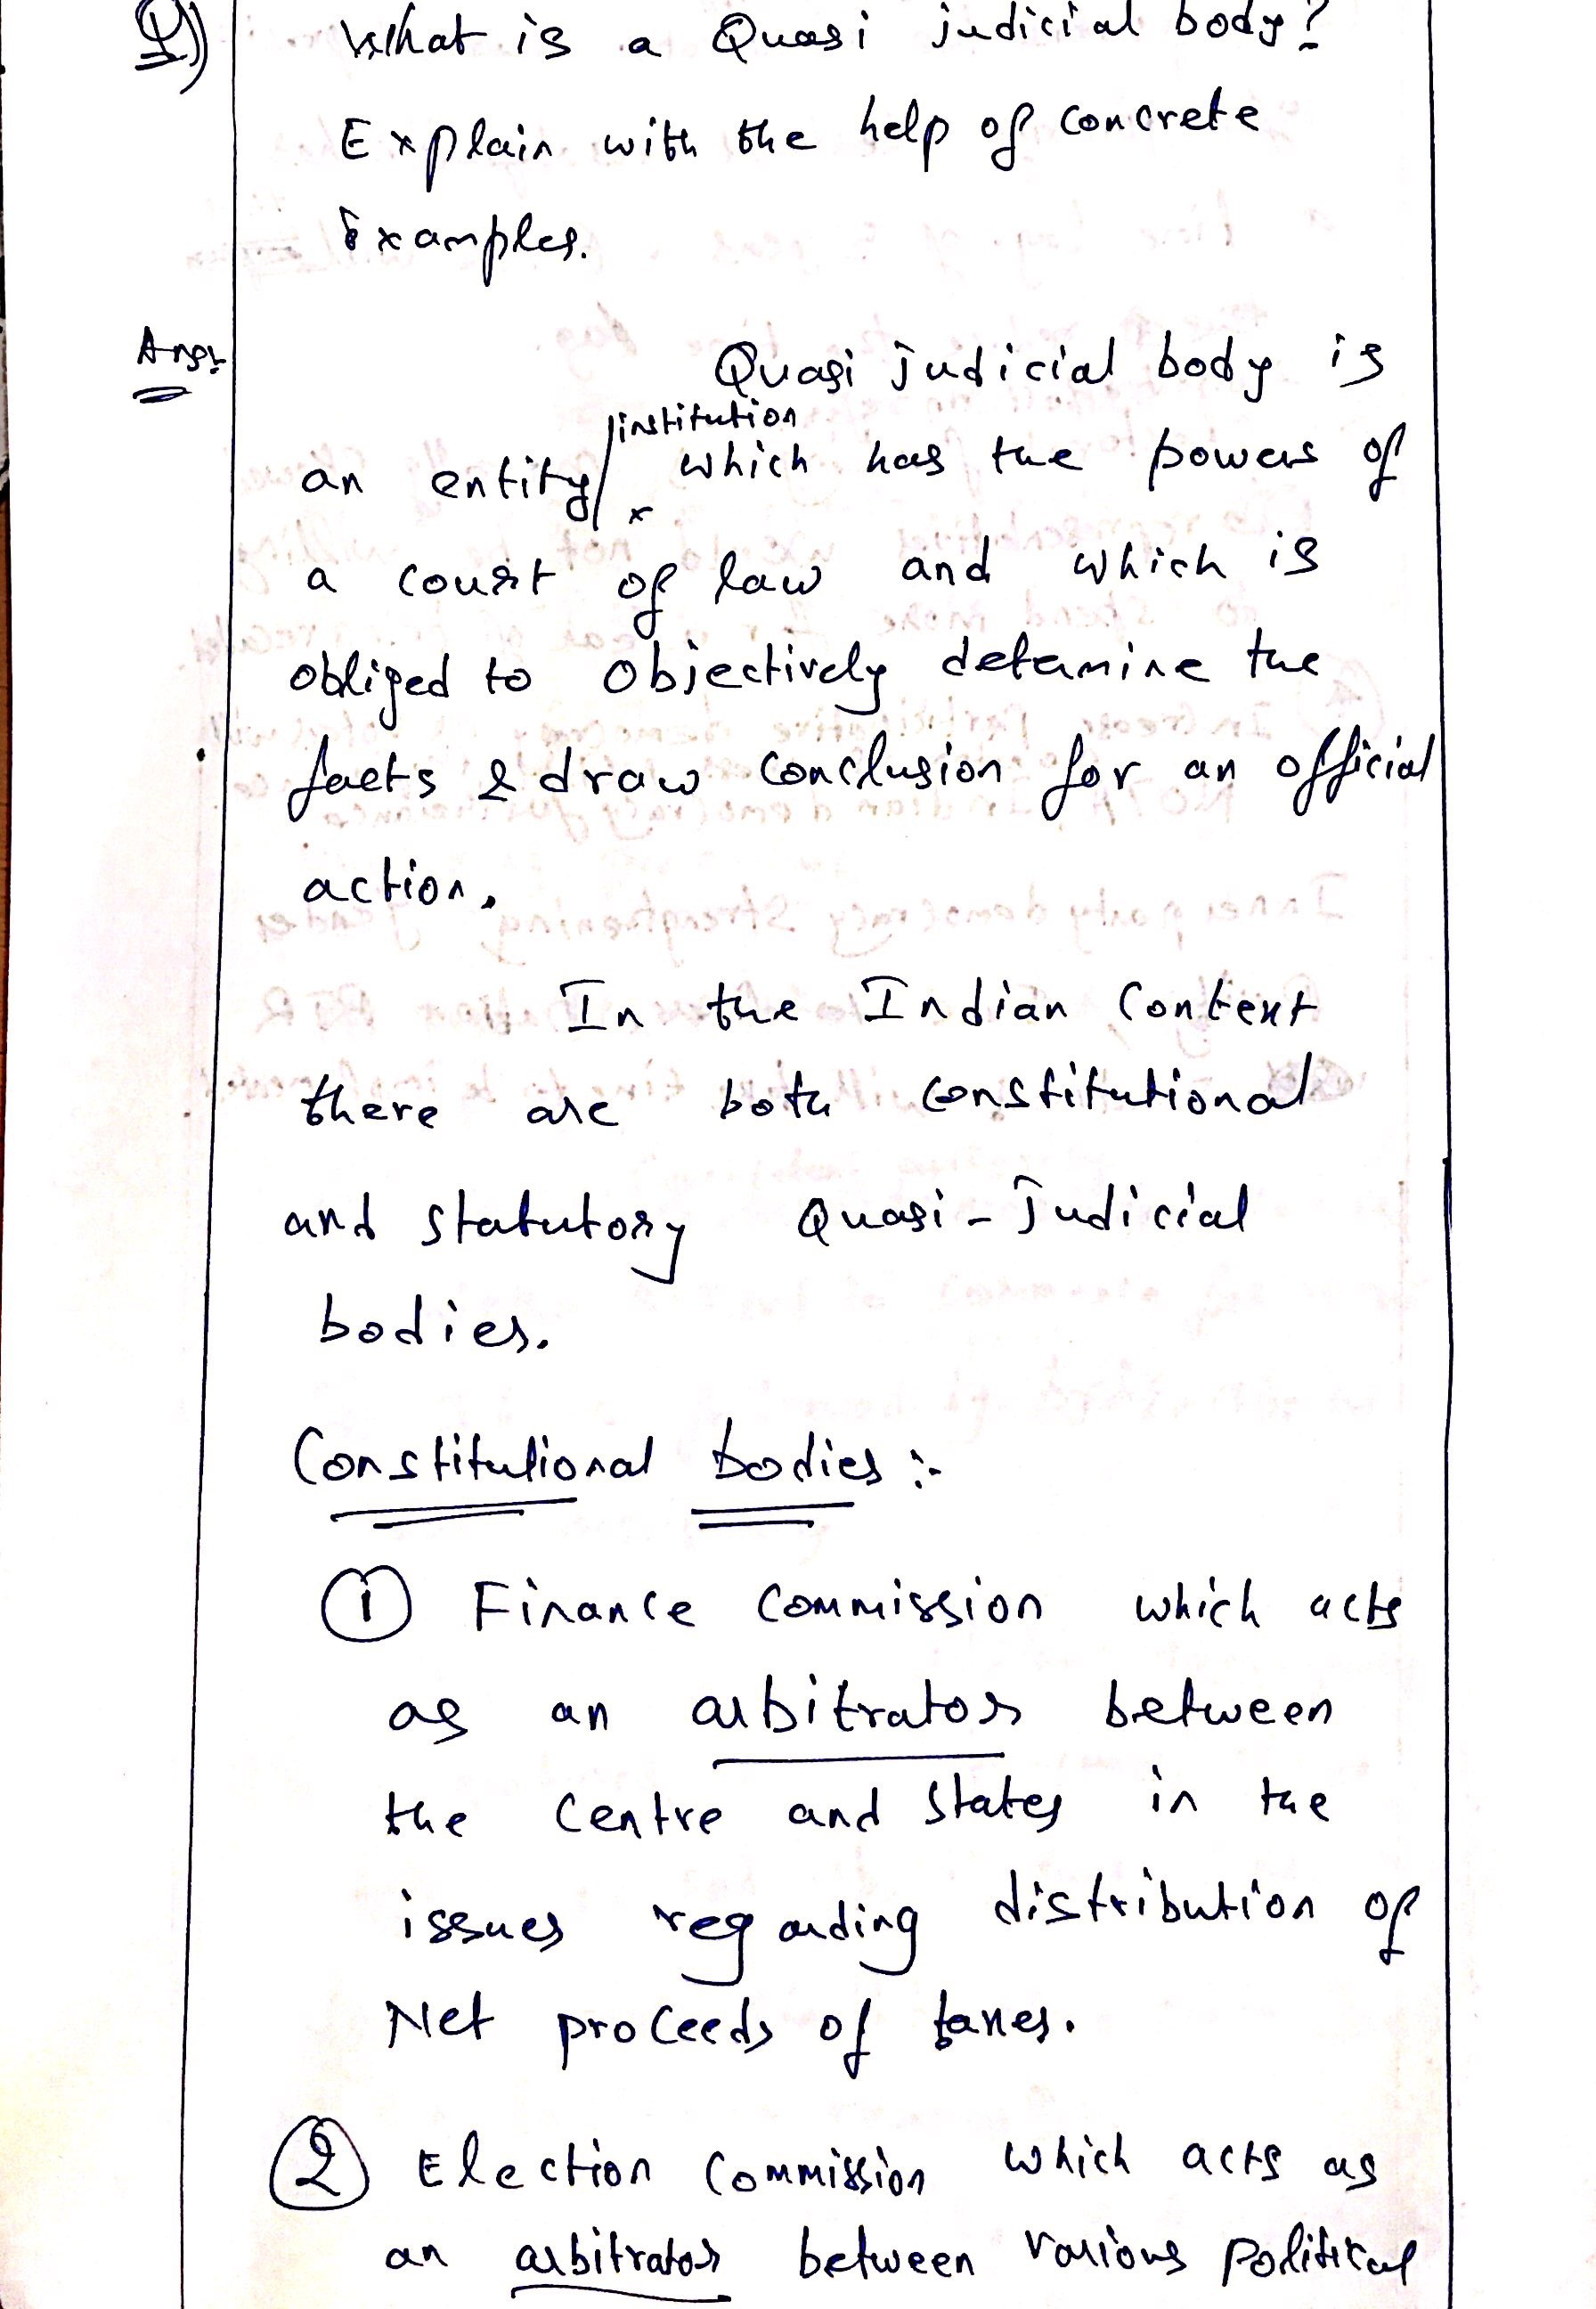 Q1) What is a Quasi judicial body?
Explain with the help of concrete
Examples.
Ans: Quasi judicial body is
an entity/institution which has the powers of
a court of law and which is
obliged to objectively determine the
facts & draw conclusion for an official
action.
In the Indian Context
there are both constitutional
and statutory Quasi-Judicial
bodies.
Constitutional bodies :-
① Finance Commission which acts
as an arbitrator between
the Centre and States in the
issues regarding distribution of
Net proceeds of taxes.
② Election Commission which acts as
an arbitrator between various political